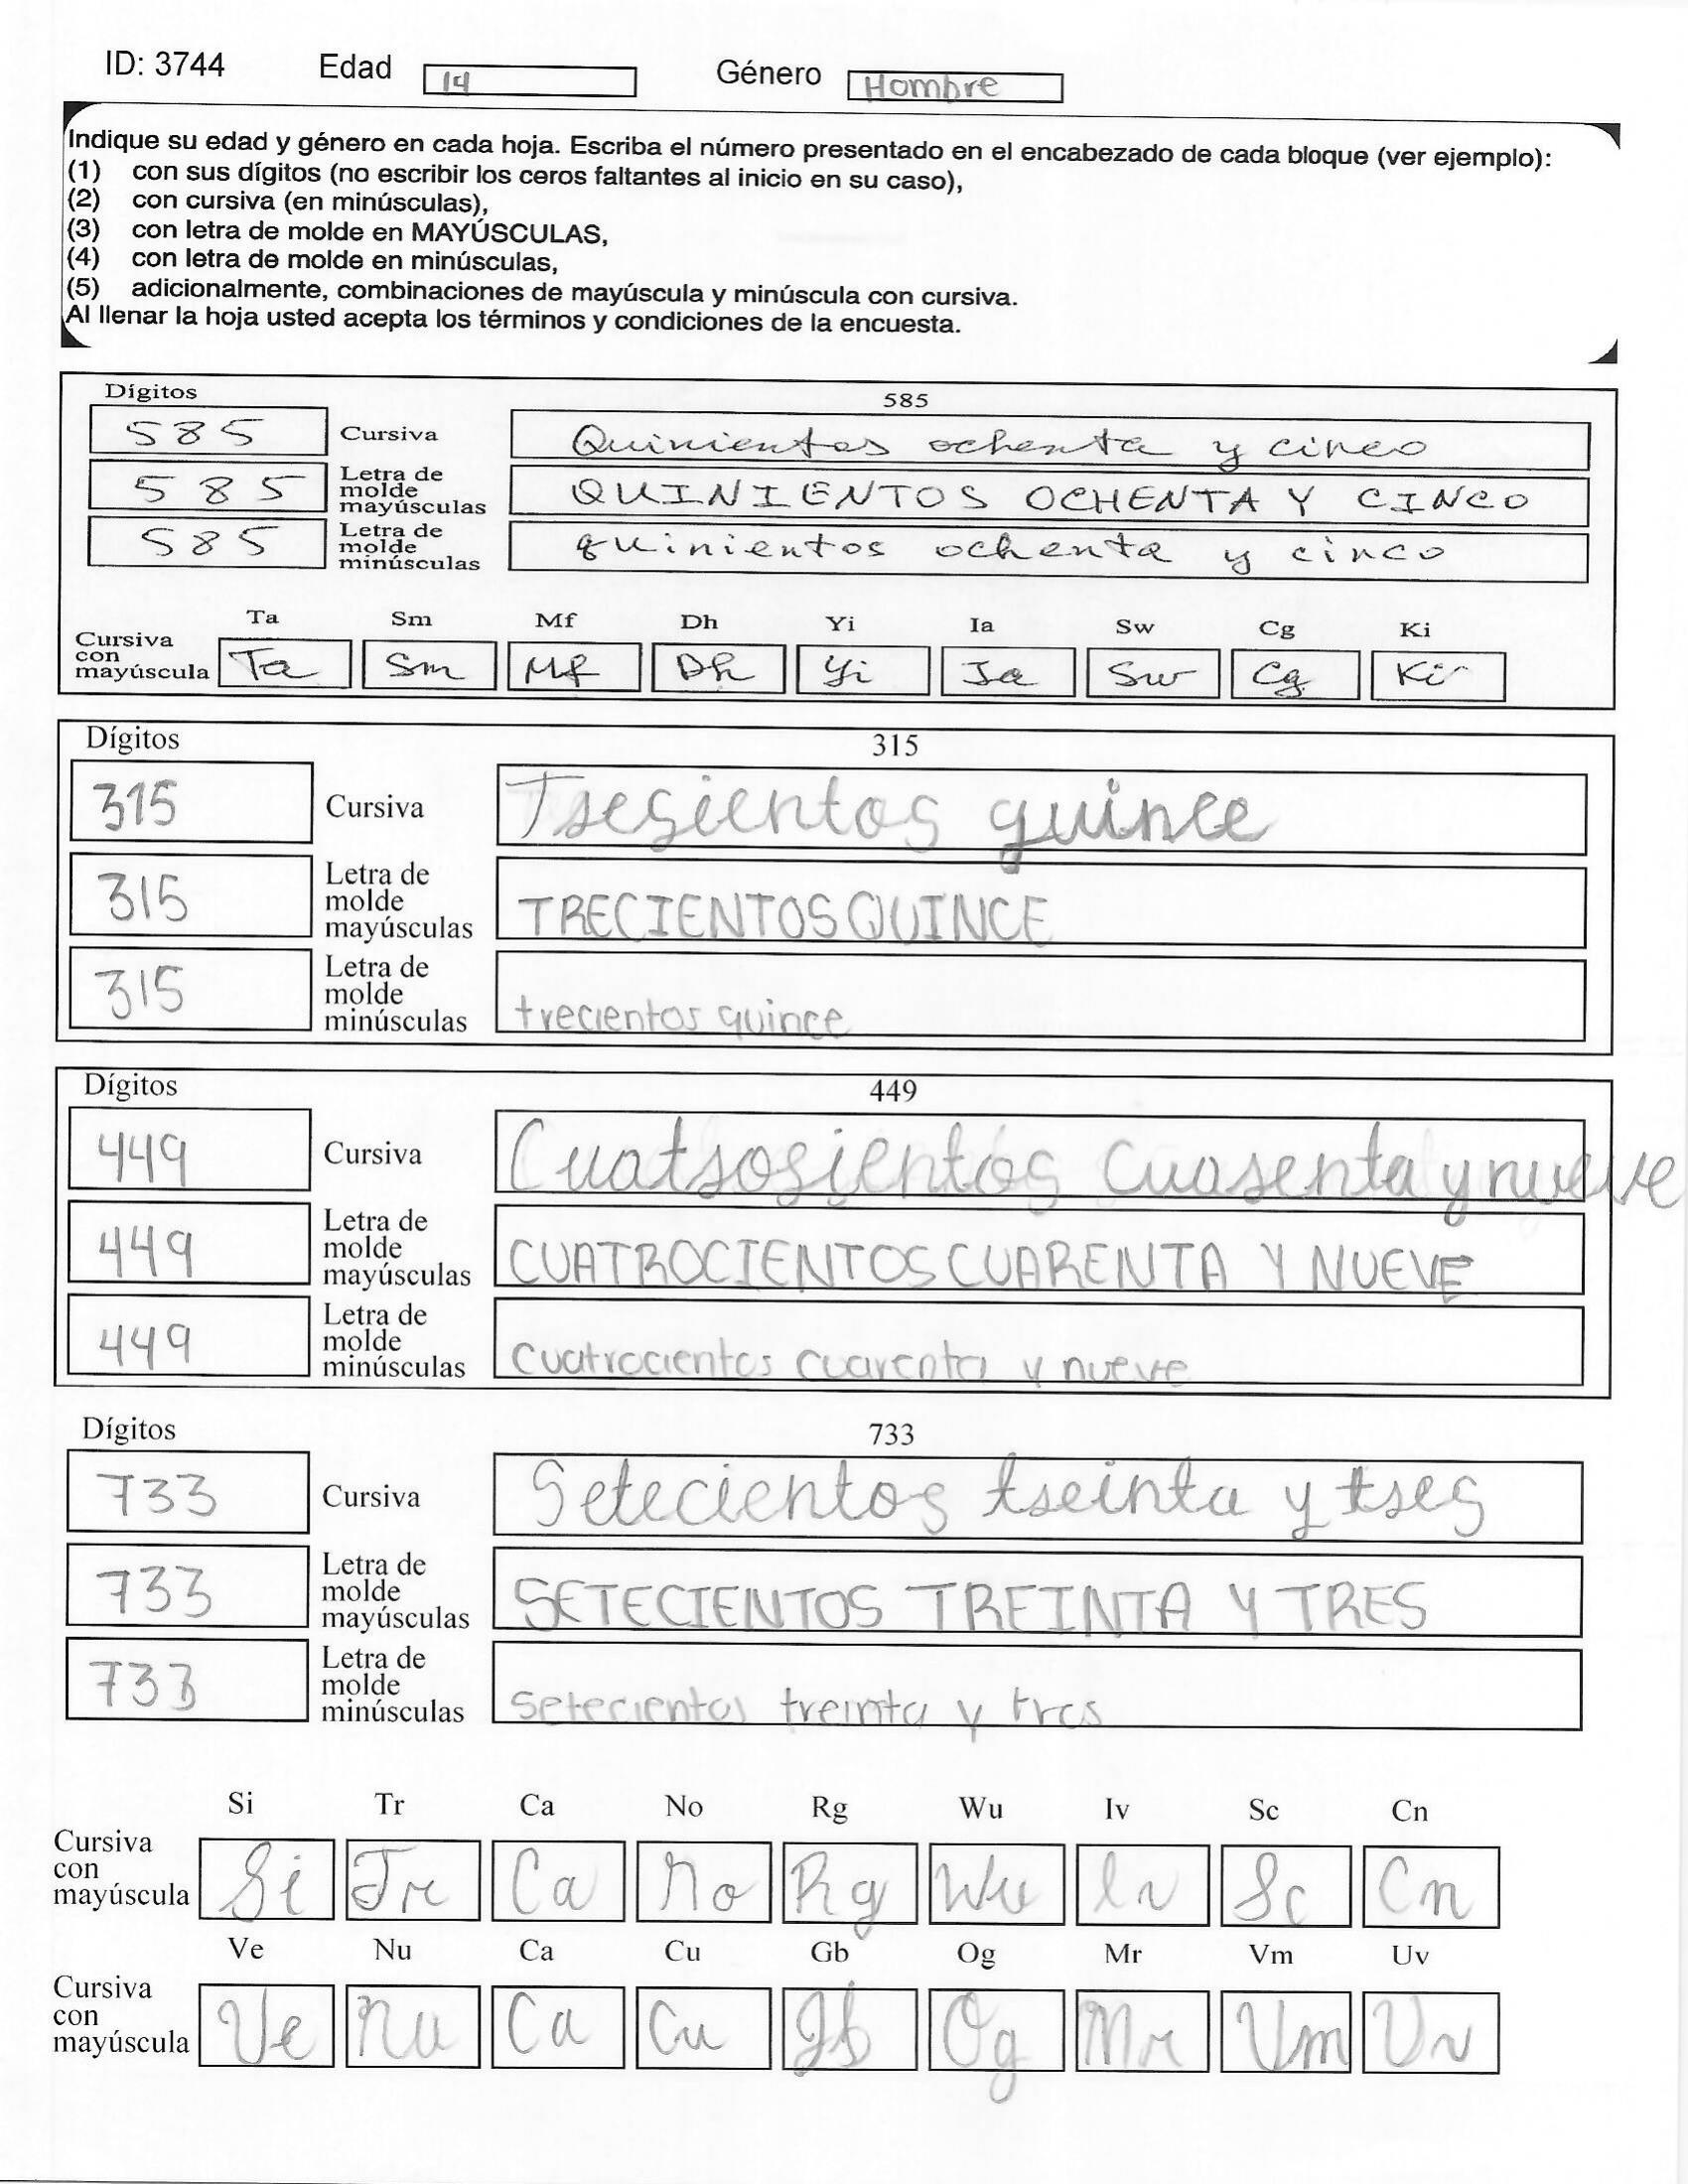 ID: 3744 Edad 14 Género Hombre
Indique su edad y género en cada hoja. Escriba el número presentado en el encabezado de cada bloque (ver ejemplo):
(1) con sus dígitos (no escribir los ceros faltantes al inicio en su caso),
(2) con cursiva (en minúsculas),
(3) con letra de molde en MAYÚSCULAS,
(4) con letra de molde en minúsculas,
(5) adicionalmente, combinaciones de mayúscula y minúscula con cursiva.
Al llenar la hoja usted acepta los términos y condiciones de la encuesta.
Dígitos 585
585 Cursiva Quinientos ochenta y cinco
585 Letra de molde mayúsculas QUINIENTOS OCHENTA Y CINCO
585 Letra de molde minúsculas quinientos ochenta y cinco
Ta Sm Mf Dh Yi Ia Sw Cg Ki
Cursiva con mayúscula Ta Sm Mf Dh Yi Ia Sw Cg Ki
Dígitos 315
315 Cursiva Tresientos quince
315 Letra de molde mayúsculas TRECIENTOS QUINCE
315 Letra de molde minúsculas trecientos quince
Dígitos 449
449 Cursiva Cuatrosientos cuarenta y nueve
449 Letra de molde mayúsculas CUATROCIENTOS CUARENTA Y NUEVE
449 Letra de molde minúsculas cuatrocientos cuarenta y nueve
Dígitos 733
733 Cursiva Setecientos treinta y tres
733 Letra de molde mayúsculas SETECIENTOS TREINTA Y TRES
733 Letra de molde minúsculas setecientos treinta y tres
Si Tr Ca No Rg Wu Iv Sc Cn
Cursiva con mayúscula Si Tr Ca No Rg Wu Iv Sc Cn
Ve Nu Ca Cu Gb Og Mr Vm Uv
Cursiva con mayúscula Ve Nu Ca Cu Gb Og Mr Vm Uv